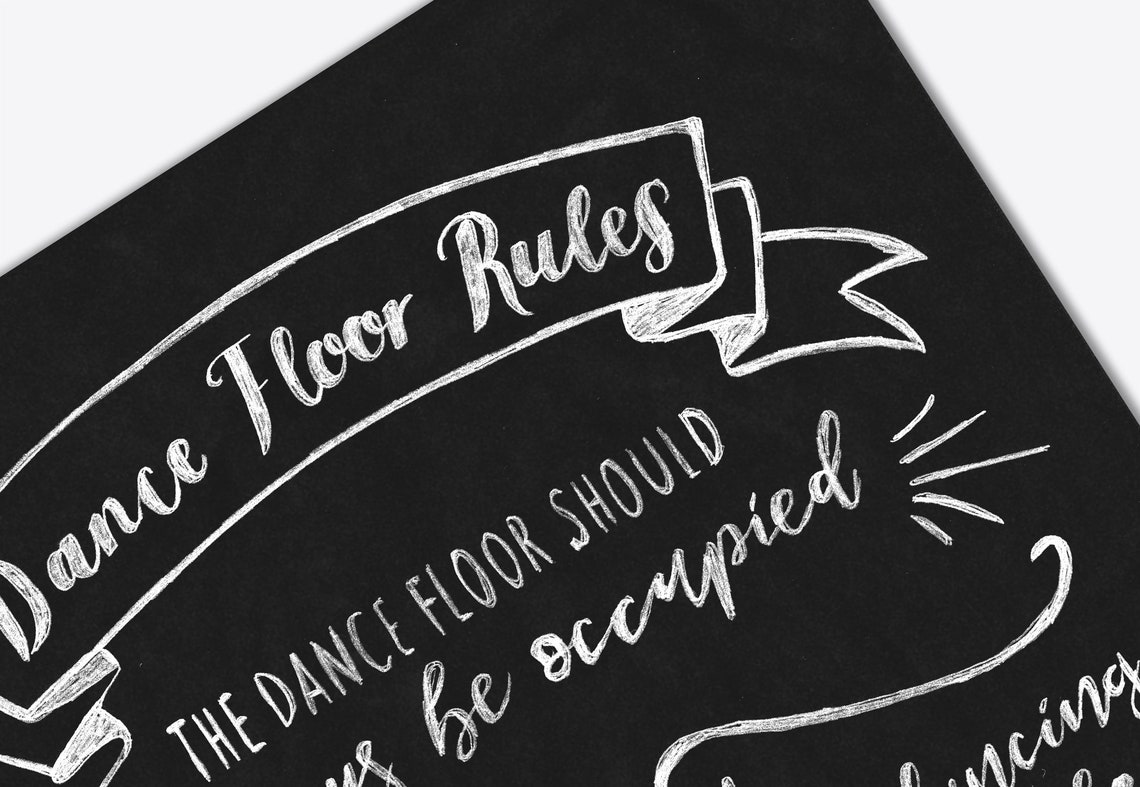 Dance Floor Rules
THE DANCE FLOOR SHOULD
be occupied